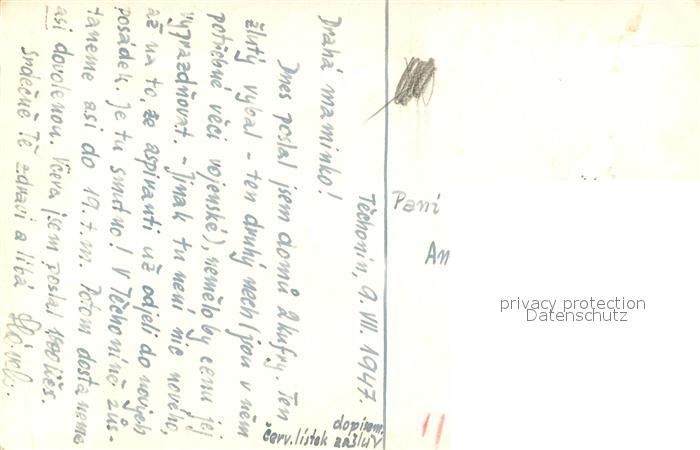 Těchonín, 9. VII. 1947.
Drahá maminko!
Dnes poslal jsem domů 2 kufry. Ten
žlutý vybal - ten druhý nech (jsou v něm
potřebné věci vojenské), neměloby cenu jej
vyprazdňovat. - Jinak tu není nic nového,
až na to, že aspiranti už odjeli do nových
posádek. Je tu smutno! V Těchoníně zůs-
taneme asi do 19. t. m. Potom dostaneme
asi dovolenou. Včera jsem poslal 1800 Kčs.
Srdečně Tě zdraví a líbá
dopisem.
červ. lístek zašlu
Paní
An
privacy protection
Datenschutz